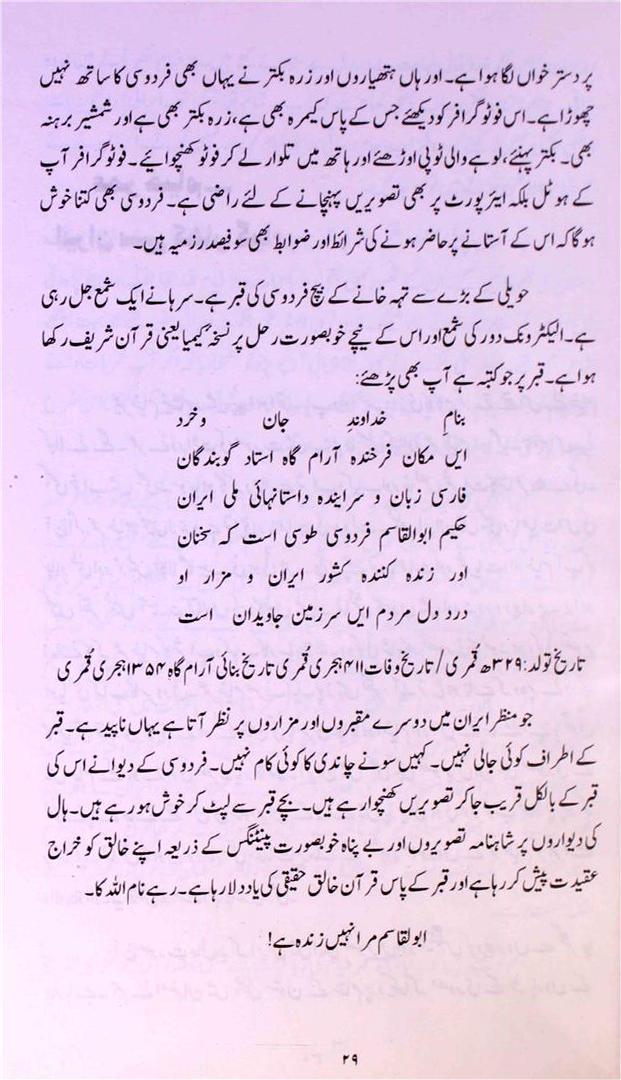 پر دستر خواں لگا ہوا ہے۔ اور ہاں ہتھیاروں اور زرہ بکتر نے یہاں بھی فردوسی کا ساتھ نہیں
چھوڑا ہے۔ اس فوٹو گرافر کو دیکھئے جس کے پاس کیمرہ بھی ہے، زرہ بکتر بھی ہے اور شمشیر برہنہ
بھی۔ بکتر پہنئے، لوہے والی ٹوپی اوڑھئے اور ہاتھ میں تلوار لے کر فوٹو کھنچوائیے۔ فوٹو گرافر آپ
کے ہوٹل بلکہ ایئرپورٹ پر بھی تصویریں پہنچانے کے لئے راضی ہے۔ فردوسی بھی کتنا خوش
ہوگا کہ اس کے آستانے پر حاضر ہونے کی شرائط اور ضوابط بھی سو فیصد رزمیہ ہیں۔
حویلی کے بڑے سے تہہ خانے کے بیچ فردوسی کی قبر ہے۔ سرہانے ایک شمع جل رہی
ہے۔ الیکٹرونک دور کی شمع اور اس کے نیچے خوبصورت رحل پر نسخۂ کیمیا یعنی قرآن شریف رکھا
ہوا ہے۔ قبر پر جو کتبہ ہے آپ بھی پڑھئے:
بنام خداوند جان وخرد
ایں مکان فرخندہ آرام گاہ استاد گویندگان
فارسی زبان و سرایندہ داستانہائی ملی ایران
حکیم ابوالقاسم فردوسی طوسی است کہ سخنان
اور زندہ کنندہ کشور ایران و مزار او
درد دل مردم ایں سرزمین جاویدان است
تاریخ تولد: ۳۲۹ھ قمری / تاریخ وفات ۴۱۱ ہجری قمری تاریخ بنائی آرام گاہ ۱۳۵۴ ہجری قمری
جو منظر ایران میں دوسرے مقبروں اور مزاروں پر نظر آتا ہے یہاں ناپید ہے۔ قبر
کے اطراف کوئی جالی نہیں۔ کہیں سونے چاندی کا کوئی کام نہیں۔ فردوسی کے دیوانے اس کی
قبر کے بالکل قریب جا کر تصویریں کھنچوا رہے ہیں۔ بچے قبر سے لپٹ کر خوش ہو رہے ہیں۔ ہال
کی دیواروں پر شاہنامہ تصویروں اور بے پناہ خوبصورت پینٹنگس کے ذریعہ اپنے خالق کو خراج
عقیدت پیش کر رہا ہے اور قبر کے پاس قرآن خالق حقیقی کی یاد دلا رہا ہے۔ رہے نام اللہ کا۔
ابولقاسم مرا نہیں زندہ ہے!
۲۹